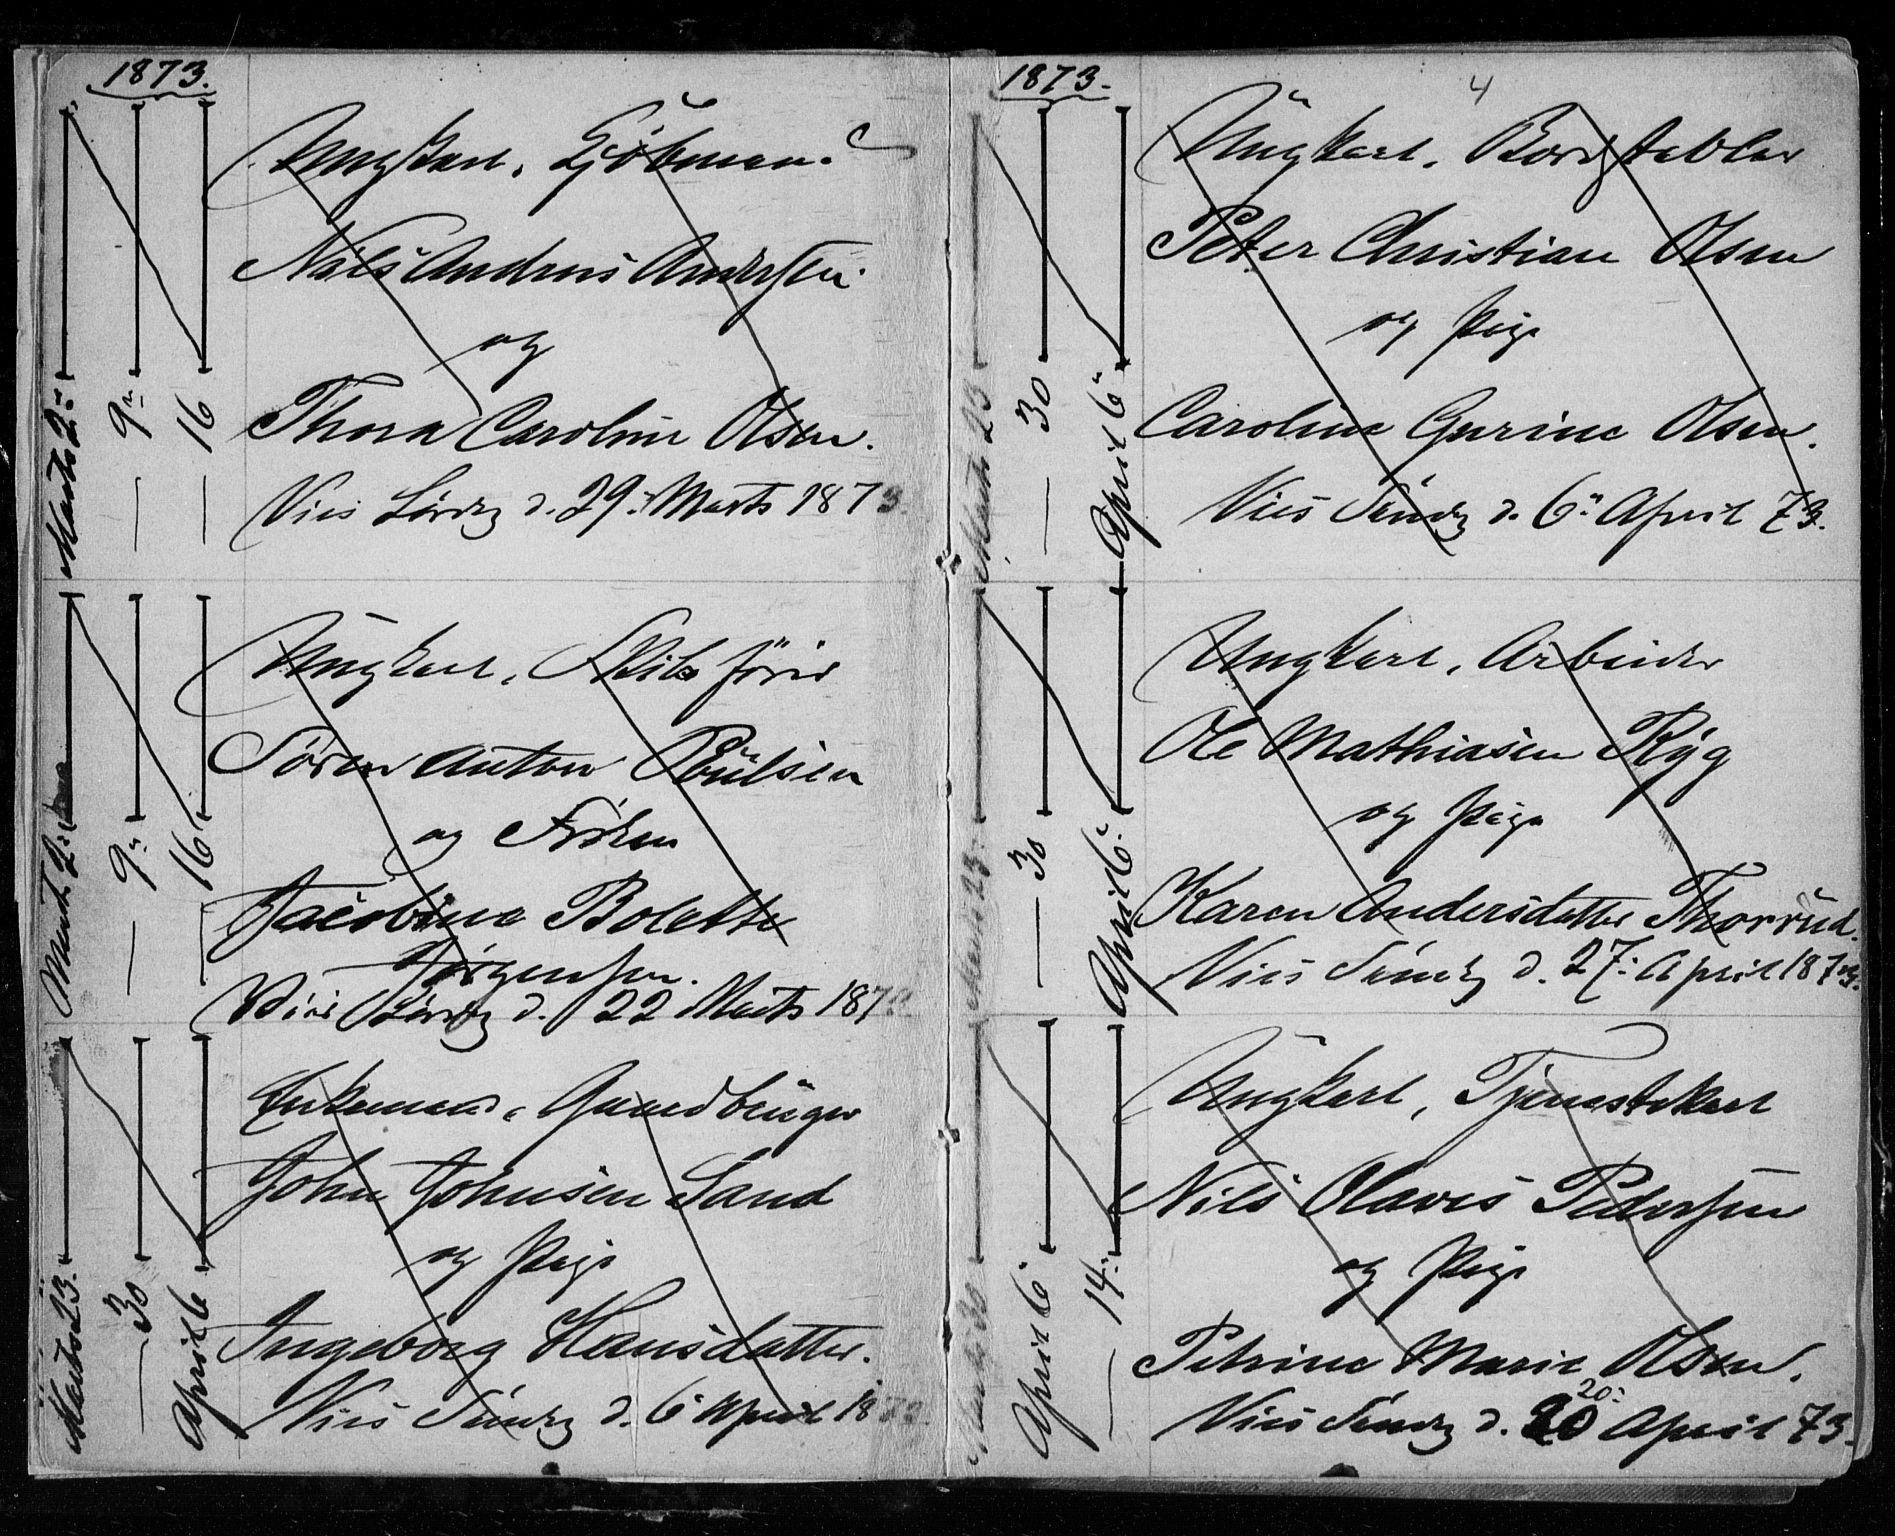 1873.
Ungkarl, Sjömand
Nils Andreas Andersen
og
Thora Caroline Olsen.
Vies Lördag d. 29: Marts 1873.
Marts 2: — 9: — 16
Ungkarl, Skibsförer
Sören Anton Poulsen
og Fröken
Jacobine Bolette
Jörgensen.
Vies Lördag d. 22 Marts 1873
Marts 2: — 9: — 16
Enkemand, Gaardbruger
John Johnsen Sand
og Pige
Ingeborg Hansdatter.
Vies Söndag d. 6 April 1873
Marts 23. — 30 April 6
1873.
4
Ungkarl, Bordstabler
Peter Christian Olsen
og Pige
Caroline Gurine Olsen.
Vies Söndag d. 6: April 73.
Marts 23 — 30 April 6
Ungkarl, Arbeider
Ole Mathiasen Ryg
og Pige
Karen Andersdatter Thorrud.
Vies Söndag d. 27: April 1873.
Marts 23. — 30 April 6:
Ungkarl, Tjenestekarl
Nils Olaves Pedersen
og Pige
Petrine Marie Olsen.
20:
Vies Söndag d. 20 April 73.
Marts 30 April 6 — 14: